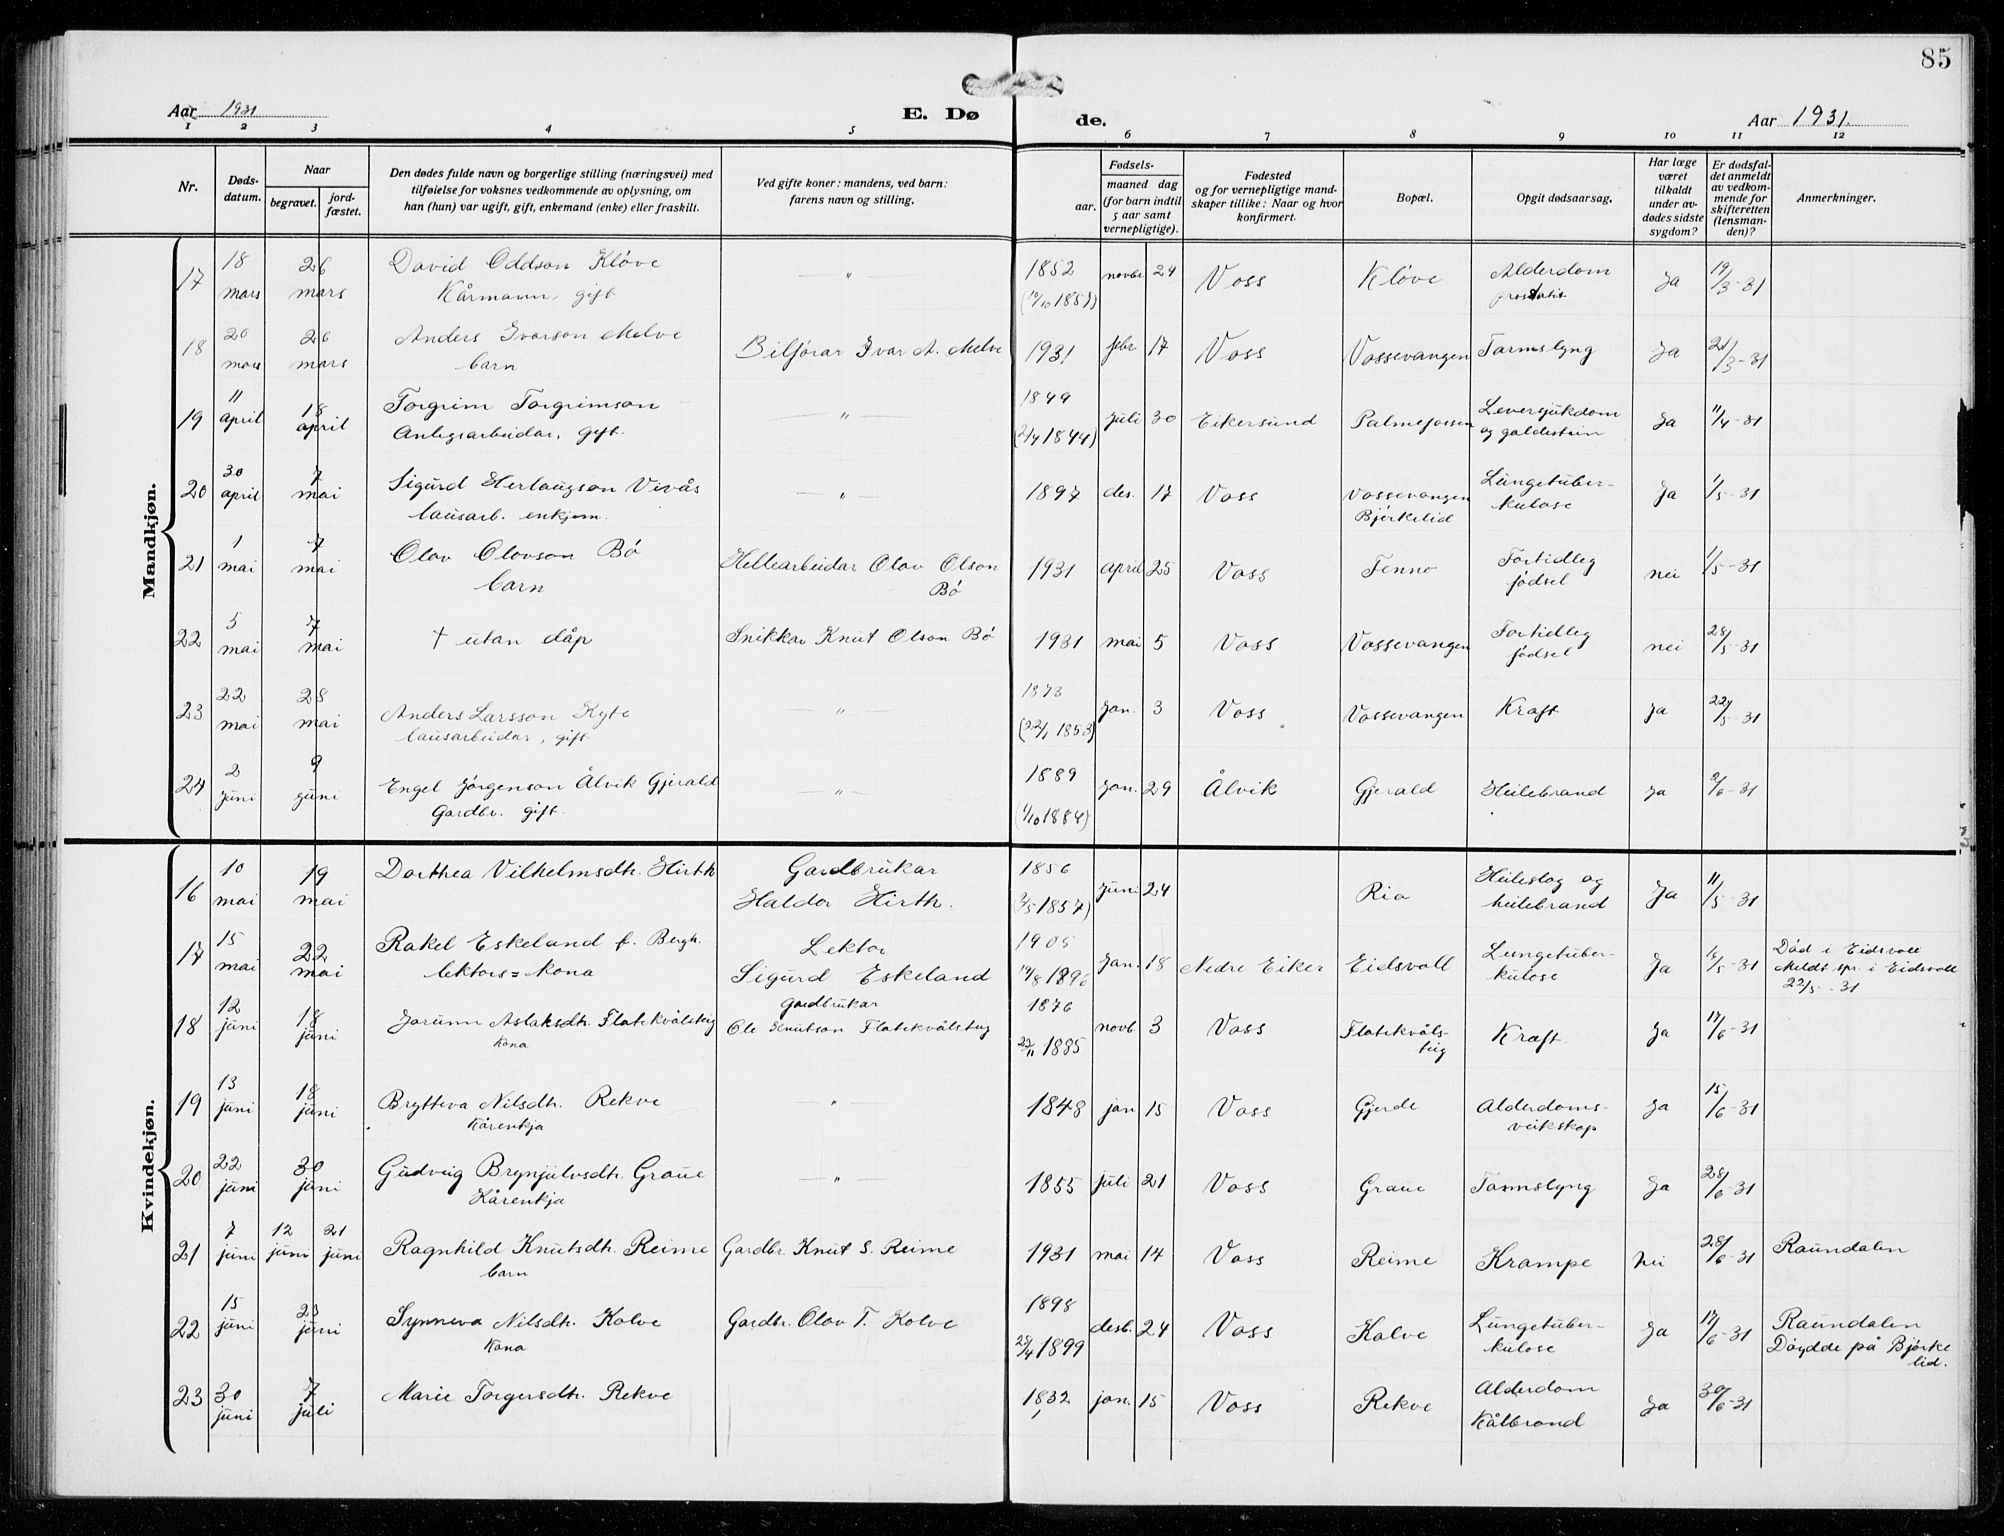 85
Aar 1931
E. Dø
de.
Aar 1931.
1 2 3 4 5 6 7 8 9 10 11 12
Nr.
Døds-
datum.
Naar
begravet.
jord-
fæstet.
Den dødes fulde navn og borgerlige stilling (næringsvei) med
tilføielse for voksnes vedkommende av oplysning, om
han (hun) var ugift, gift, enkemand (enke) eller fraskilt.
Ved gifte koner: mandens, ved barn:
farens navn og stilling.
Fødsels-
aar.
maaned dag
(for barn indtil
5 aar samt
vernepligtige).
Fødested
og for vernepligtige mand-
skaper tillike: Naar og hvor
konfirmert.
Bopæl.
Opgit dødsaarsag.
Har læge
været
tilkaldt
under av-
dødes sidste
sygdom?
Er dødsfal-
det anmeldt
av vedkom-
mende for
skifteretten
(lensman-
den)?
Anmerkninger.
Mandkjøn.
17 18 mars 26 mars David Oddson Kløve — " — 1852 novbr 24 Voss Kløve Alderdom Ja 19/3-31
Kårmann, gift (10/10 1851) prostatit
18 20 mars 26 mars Anders Ivarson Melve Bilførar Ivar A. Melve 1931 febr 17 Voss Vossevangen Tarmslyng Ja 21/3-31
barn
19 11 april 18 april Torgrim Torgrimson — " — 1849 juli 30 Eikersund Palmefossen Leversjukdom Ja 11/4-31
Anlegsarbeidar, gift. (2/4 1844) og galdestein
20 30 april 7 mai Sigurd Herlaugson Vivås — " — 1897 des. 17 Voss Vossevangen Lungetuber- Ja 1/5-31
lausarb. enkjem. Bjørkelid kulose
21 1 mai 7 mai Olav Olavson Bø Hellearbeidar Olav Olson 1931 april 25 Voss Tenno Fortidleg nei 1/5-31
barn Bø fødsel
22 5 mai 7 mai † utan dåp Snikkar Knut Olson Bø 1931 mai 5 Voss Vossevangen Fortidleg nei 28/5-31
fødsel
23 22 mai 28 mai Anders Larsson Kyte — " — 1873 Jan. 3 Voss Vossevangen Kraft Ja 22/5-31
lausarbeidar, gift (22/1 1853)
24 2 juni 9 juni Engel Jørgenson Ålvik Gjerald — " — 1889 Jan. 29 Ålvik Gjerald Heilebrand Ja 2/6-31
Gardbr. gift. (1/10 1884)
Kvindekjøn.
16 10 mai 19 mai Dorthea Vilhelmsdtr. Hirth Gardbrukar 1856 Juni 24 Ria Heileslag og Ja 11/5-31
Haldor Hirth. (3/5 1857) heilebrand
17 15 mai 22 mai Rakel Eskeland f. Bergh. Lektor 1905 Jan. 18 Nedre Eiker Eidsvoll Lungetuber- Ja 15/5-31 Død i Eidsvoll
lektors=kona Sigurd Eskeland 19/8 1896 kulose Meldt spr. i Eidsvoll
22/5-31
18 12 juni 18 juni Jorunn Aslaksdtr. Flatekvålsteig gardbrukar 1876 novb 3 Voss Flatekvåls- Kraft. Ja 17/6-31
kona Ole Knutson Flatekvålsteig 22/11 1885 teig
19 13 juni 18 juni Brytteva Nilsdtr. Rekve — " — 1848 jan 15 Voss Gjerde Alderdoms- Ja 15/6-31
Kårenkja veikskap
20 22 juni 30 juni Gudveig Brynjulvsdtr. Graue — " — 1855 juli 21 Voss Graue Tarmslyng Ja 28/6-31
Kårenkja
21 7 juni 12 juni 21 juni Ragnhild Knutsdtr. Reime Gardbr. Knut S. Reime 1931 mai 14 Voss Reime Krampe nei 28/6-31 Raundalen
barn
22 15 juni 23 juni Synneva Nilsdtr. Kolve Gardbr. Olav T. Kolve 1898 desb. 24 Voss Kolve Lungetuber- Ja 17/6-31 Raundalen
Kona 23/4 1899 kulose Døydde på Bjørke
lid.
23 30 juni 7 juli Marie Torgersdtr. Rekve 1832 jan. 15 Voss Rekve Alderdom Ja 30/6-31
Kålbrand